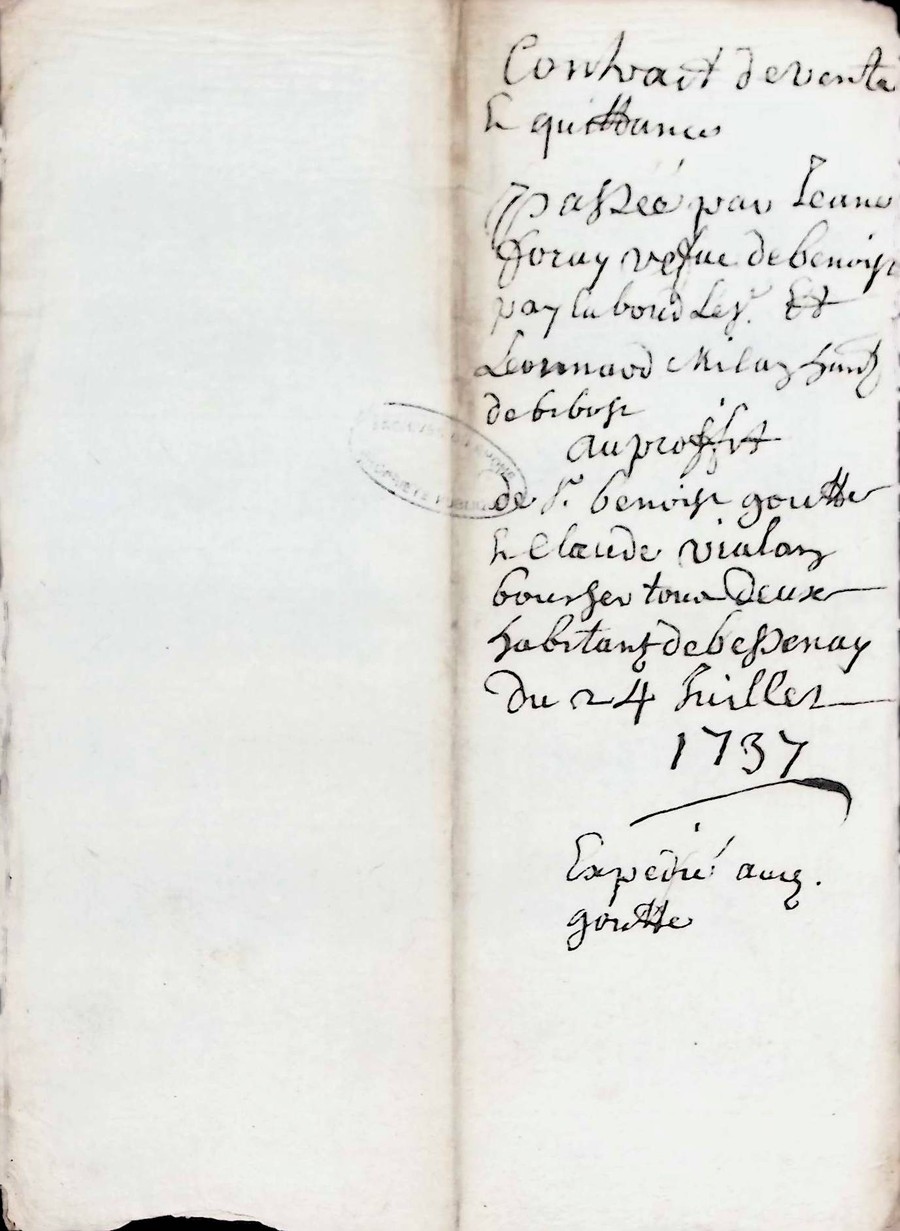 Contract de vente
Et quittance
Passée par Jeane
fforay vefue de benoist
pay laboud Le Sr. Et
Leonnard
de bibost
au proffit
de Sr. benoist goutte
Et Claude vialon
boursier tous Deux
habitants de bessenay
Du 24 Juillet
1737
Expedié aud.
goutte